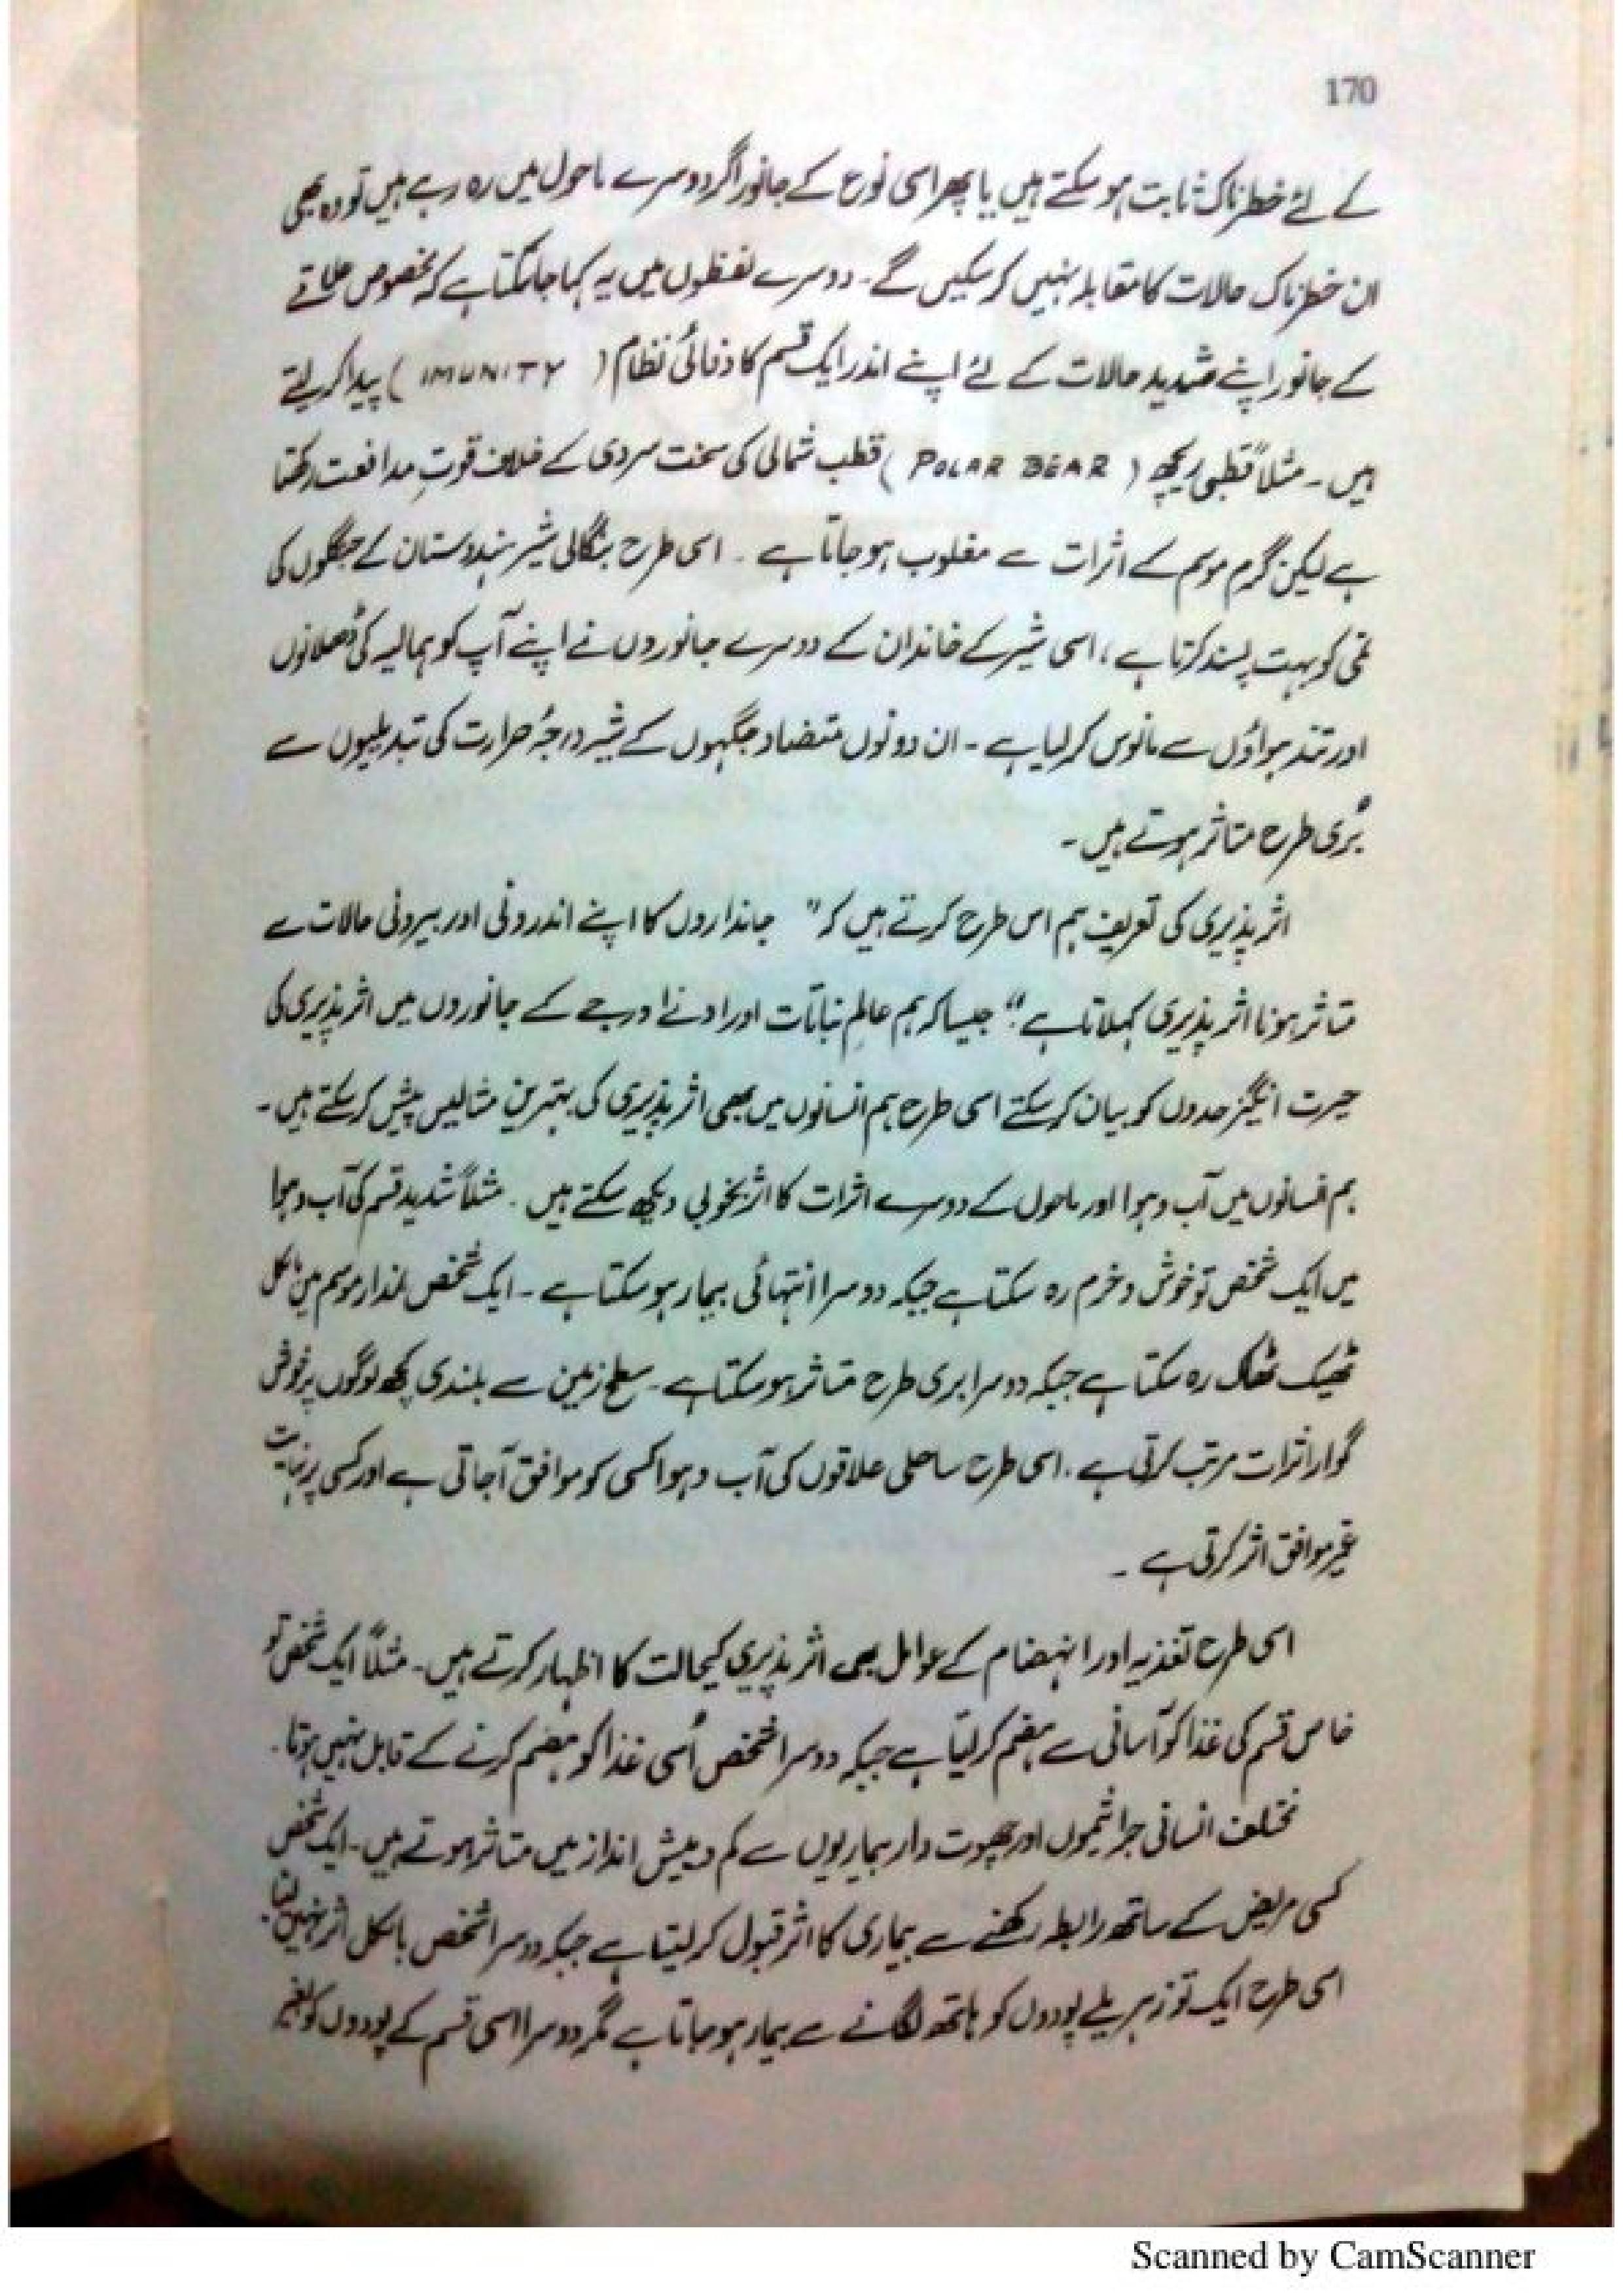 170
کے لئے خطرناک ثابت ہو سکتے ہیں یا پھر اسی نوع کے جانور اگر دوسرے ماحول میں رہ رہے ہیں تو وہ بھی
ان خطرناک حالات کا مقابلہ نہیں کر سکیں گے۔ دوسرے لفظوں میں یہ کہا جا سکتا ہے کہ مخصوص علاقے
کے جانور اپنے شدید حالات کے لئے اپنے اندر ایک قسم کا دفائی نظام ( IMUNITY ) پیدا کر لیتے
ہیں۔ مثلاً قطبی ریچھ ( POLAR BEAR ) قطب شمالی کی سخت سردی کے خلاف قوتِ مدافعت رکھتا
ہے لیکن گرم موسم کے اثرات سے مغلوب ہو جاتا ہے۔ اسی طرح بنگالی شیر ہندوستان کے جنگلوں کی
نمی کو بہت پسند کرتا ہے، اسی شیر کے خاندان کے دوسرے جانوروں نے اپنے آپ کو ہمالیہ کی ڈھلانوں
اور تند ہواؤں سے مانوس کر لیا ہے۔ ان دونوں متضاد جگہوں کے شیر درجۂ حرارت کی تبدیلیوں سے
بُری طرح متاثر ہوتے ہیں۔
اثر پذیری کی تعریف ہم اس طرح کرتے ہیں کہ " جانداروں کا اپنے اندرونی اور بیرونی حالات سے
متاثر ہونا اثر پذیری کہلاتا ہے"؛ جیسا کہ ہم عالمِ نباتات اور ادنےٰ درجے کے جانوروں میں اثر پذیری کی
حیرت انگیز حدوں کو بیان کر سکتے اسی طرح ہم انسانوں میں بھی اثر پذیری کی بہترین مثالیں پیش کر سکتے ہیں۔
ہم انسانوں میں آب و ہوا اور ماحول کے دوسرے اثرات کا اثر بخوبی دیکھ سکتے ہیں۔ مثلاً شدید قسم کی آب و ہوا
میں ایک شخص تو خوش و خرم رہ سکتا ہے جبکہ دوسرا انتہائی بیمار ہو سکتا ہے۔ ایک شخص نمدار موسم میں بالکل
ٹھیک ٹھاک رہ سکتا ہے جبکہ دوسرا بری طرح متاثر ہو سکتا ہے۔ سطح زمین سے بلندی کچھ لوگوں پر خوش
گوار اثرات مرتب کرتی ہے۔ اسی طرح ساحلی علاقوں کی آب و ہوا کسی کو موافق آ جاتی ہے اور کسی پر نہایت
غیر موافق اثر کرتی ہے۔
اسی طرح تغذیہ اور انہضام کے عوامل بھی اثر پذیری کیحالت کا اظہار کرتے ہیں۔ مثلاً ایک شخص تو
خاص قسم کی غذا کو آسانی سے ہضم کر لیتا ہے جبکہ دوسرا شخص اُسی غذا کو ہضم کرنے کے قابل نہیں ہوتا۔
مختلف انسانی جراثیموں اور چھوت دار بیماریوں سے کم و بیش انداز میں متاثر ہوتے ہیں۔ ایک شخص
کسی مریض کے ساتھ رابطہ رکھنے سے بیماری کا اثر قبول کر لیتا ہے جبکہ دوسرا شخص بالکل اثر نہیں لیتا۔
اسی طرح ایک تو زہریلے پودوں کو ہاتھ لگانے سے بیمار ہو جاتا ہے مگر دوسرا اسی قسم کے پودوں کو بغیر
Scanned by CamScanner